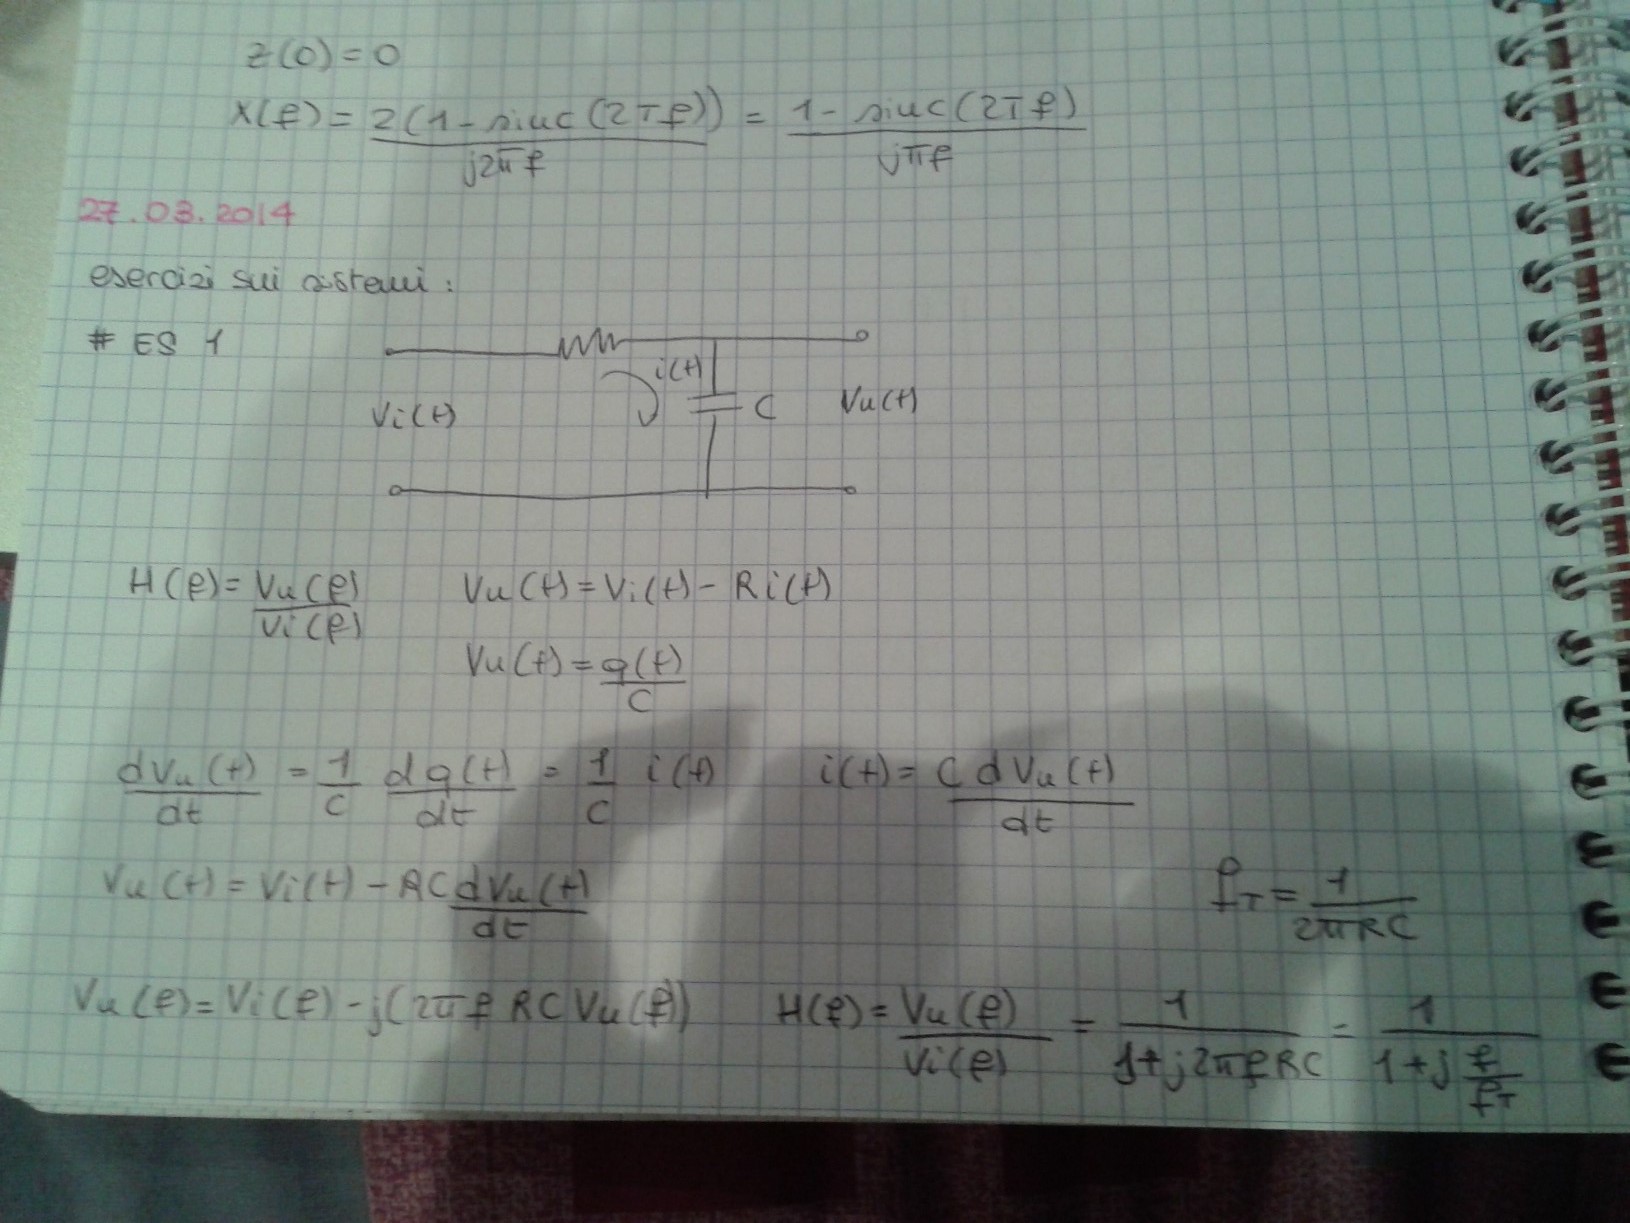 z(0)=0
X(f) = 2(1 - sinc(2Tf)) / j2πf = 1 - sinc(2Tf) / jπf
27.03.2014
esercizi sui sistemi :
# ES 1
i(t)
Vi(t) C Vu(t)
H(f) = Vu(f) / Vi(f) Vu(t) = Vi(t) - Ri(t)
Vu(t) = q(t) / C
dVu(t) / dt = 1 / C dq(t) / dt = 1 / C i(t) i(t) = C dVu(t) / dt
Vu(t) = Vi(t) - RC dVu(t) / dt fT = 1 / 2πRC
Vu(f) = Vi(f) - j(2πf RC Vu(f)) H(f) = Vu(f) / Vi(f) = 1 / 1+j2πfRC = 1 / 1+j f/fT